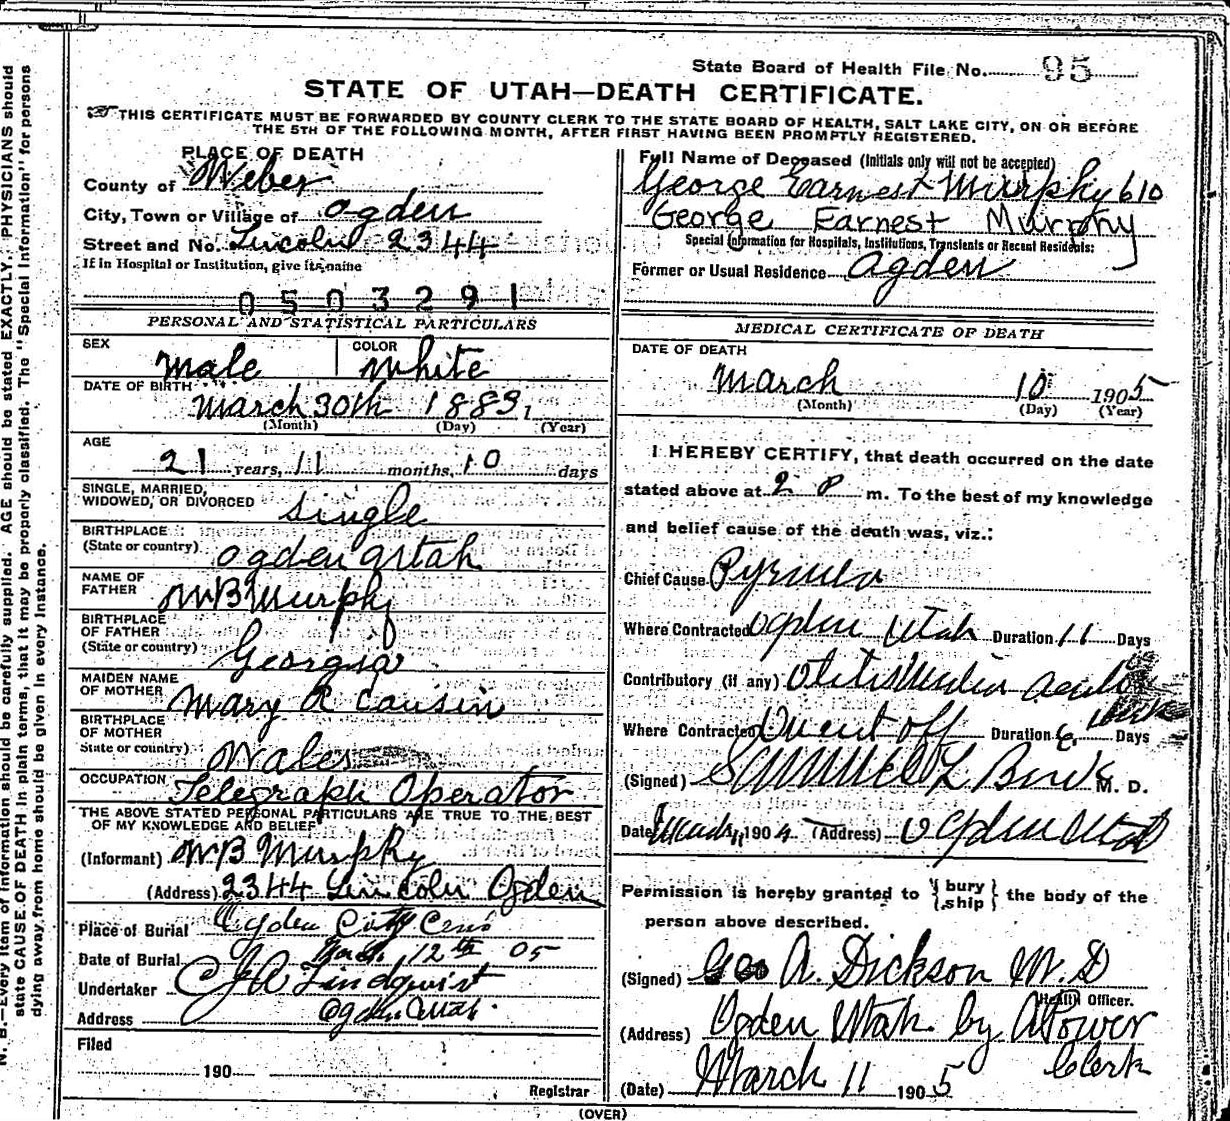 State Board of Health File No. 95
STATE OF UTAH—DEATH CERTIFICATE.
THIS CERTIFICATE MUST BE FORWARDED BY COUNTY CLERK TO THE STATE BOARD OF HEALTH, SALT LAKE CITY, ON OR BEFORE
THE 5TH OF THE FOLLOWING MONTH, AFTER FIRST HAVING BEEN PROMPTLY REGISTERED.
PLACE OF DEATH
County of Weber
City, Town or Village of Ogden
Street and No. Lincoln 2344
If in Hospital or Institution, give its name
0503291
PERSONAL AND STATISTICAL PARTICULARS
SEX Male COLOR White
DATE OF BIRTH
March 30th 1883
(Month) (Day) (Year)
AGE
21 years, 11 months, 10 days
SINGLE, MARRIED,
WIDOWED, OR DIVORCED Single
BIRTHPLACE
(State or country) Ogden Utah
NAME OF
FATHER W B Murphy
BIRTHPLACE
OF FATHER
(State or country) Georgia
MAIDEN NAME
OF MOTHER Mary R Cousin
BIRTHPLACE
OF MOTHER
State or country) Wales
OCCUPATION Telegraph Operator
THE ABOVE STATED PERSONAL PARTICULARS ARE TRUE TO THE BEST
OF MY KNOWLEDGE AND BELIEF
(Informant) W B Murphy
(Address) 2344 Lincoln Ogden
Place of Burial Ogden City Cem
Date of Burial Mar. 12th 05
Undertaker Lindquist
Address Ogden Utah
Filed
190
Registrar
Full Name of Deceased (Initials only will not be accepted)
George Earnest Murphy 610
George Earnest Murphy
Special Information for Hospitals, Institutions, Transients or Recent Residents:
Former or Usual Residence Ogden
MEDICAL CERTIFICATE OF DEATH
DATE OF DEATH
March 10 1905
(Month) (Day) (Year)
I HEREBY CERTIFY, that death occurred on the date
stated above at 2 P m. To the best of my knowledge
and belief cause of the death was, viz.:
Chief Cause Pyemia
Where Contracted Ogden Utah Duration 11 Days
Contributory (if any) Otitis Media Acute
Where Contracted Duration 6 Days
(Signed) M. D.
Date March 11 1904 (Address) Ogden Utah
Permission is hereby granted to { bury ship } the body of the
person above described.
(Signed) Geo A. Dickson M. D
Health Officer.
(Address) Ogden Utah by A Power
Clerk
(Date) March 11 1905
(OVER)
N. B.—Every item of information should be carefully supplied. AGE should be stated EXACTLY. PHYSICIANS should
state CAUSE OF DEATH in plain terms, that it may be properly classified. The "Special Information" for persons
dying away from home should be given in every instance.